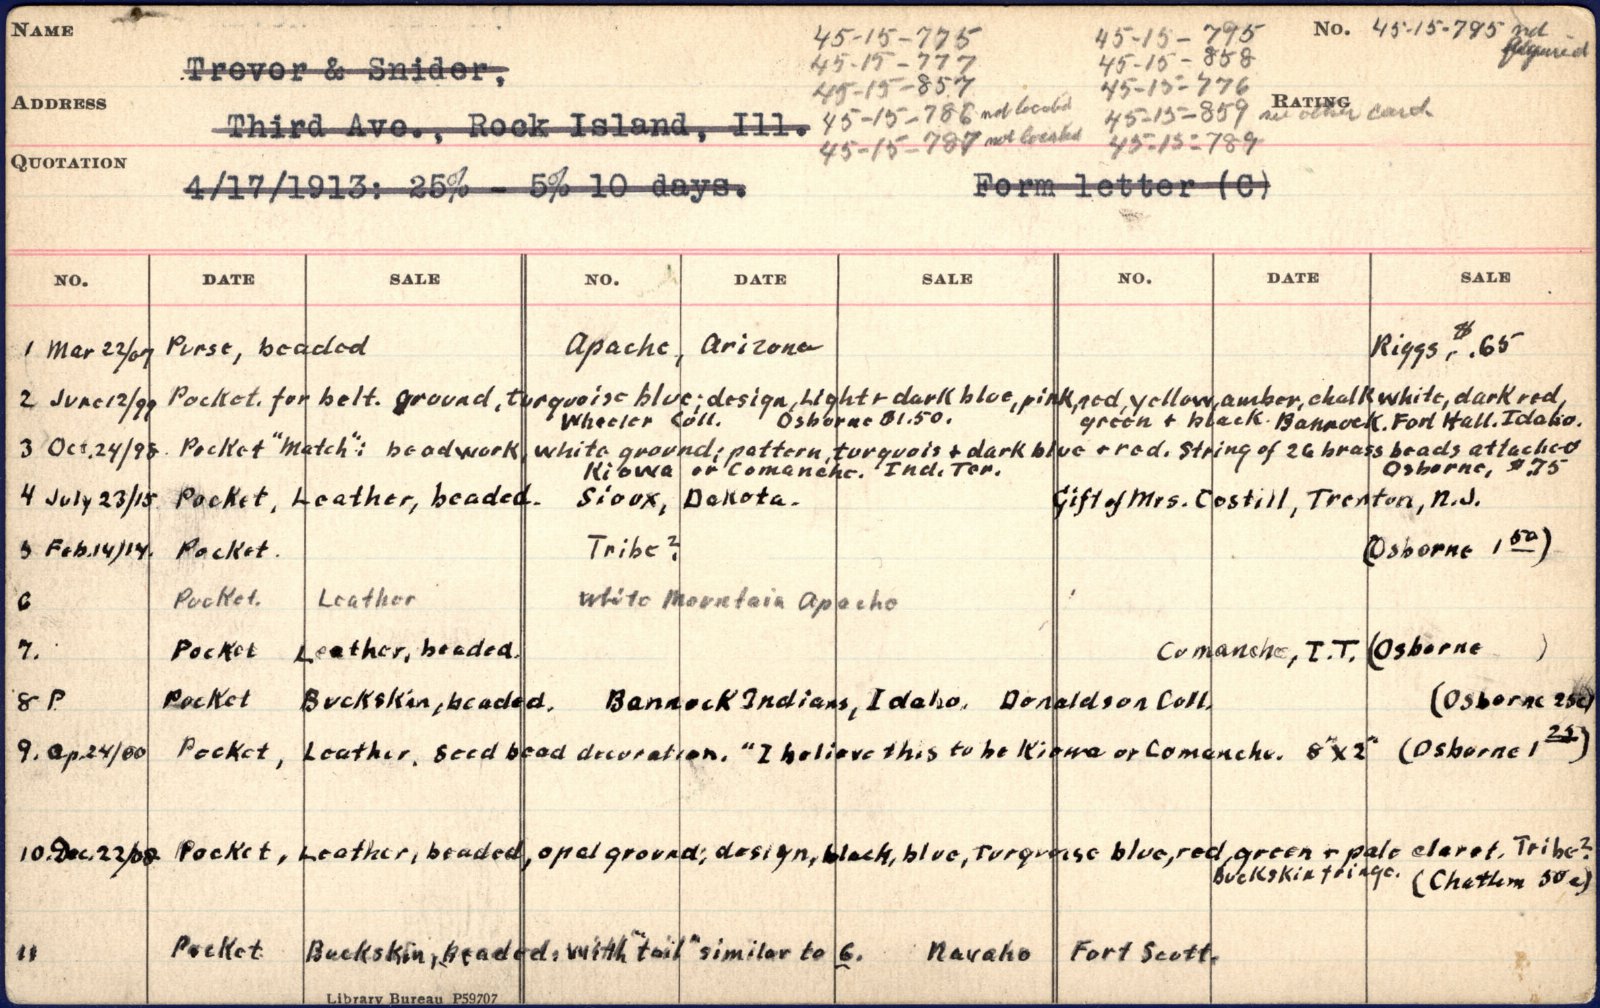 NAME
Trevor & Snider,
45-15-775
45-15-777
45-15-857
45-15-786 not located
45-15-787 not located
45-15-795
45-15-858
45-15-776
45-15-859 see other card.
45-15-789
No. 45-15-785 not
ADDRESS
Third Ave., Rock Island, Ill.
RATING
QUOTATION
4/17/1913: 25% - 5% 10 days. Form letter (C)
NO. DATE SALE NO. DATE SALE NO. DATE SALE
1 Mar 22/07 Purse, beaded Apache, Arizona Riggs, $.65
2 June 12/99 Pocket. for belt. ground, turquoise blue; design, Light + dark blue, pink, red, yellow, amber, chalk white, dark red,
Wheeler Coll. Osborne $1.50. green + black. Bannock. Fort Hall. Idaho.
3 Oct. 24/98 Pocket "Match": beadwork, white ground; pattern, turquois + dark blue + red. String of 26 brass beads attached
Kiowa or Comanche. Ind. Ter. Osborne, $.75
4 July 23/15 Pocket, Leather, beaded. Sioux, Dakota. Gift of Mrs. Costill, Trenton, N.J.
5 Feb. 14/14. Pocket. Tribe? (Osborne 1 50)
6 Pocket. Leather White Mountain Apache
7. Pocket Leather, beaded. Comanche, I.T. (Osborne )
8 P. Pocket Buckskin, beaded. Bannock Indians, Idaho. Donaldson Coll. (Osborne 25c)
9. Ap. 24/00 Pocket, Leather, Seed bead decoration. "I believe this to be Kiowa or Comanche. 8" X 2" (Osborne 1 25)
10. Dec. 22/08 Pocket, Leather, beaded, opal ground; design, black, blue, Turquoise blue, red, green + pale claret. Tribe?
Buckskin fringe. (Chatham 50c)
11 Pocket Buckskin, beaded: with "tail" similar to 6. Navaho Fort Scott.
Library Bureau P59707